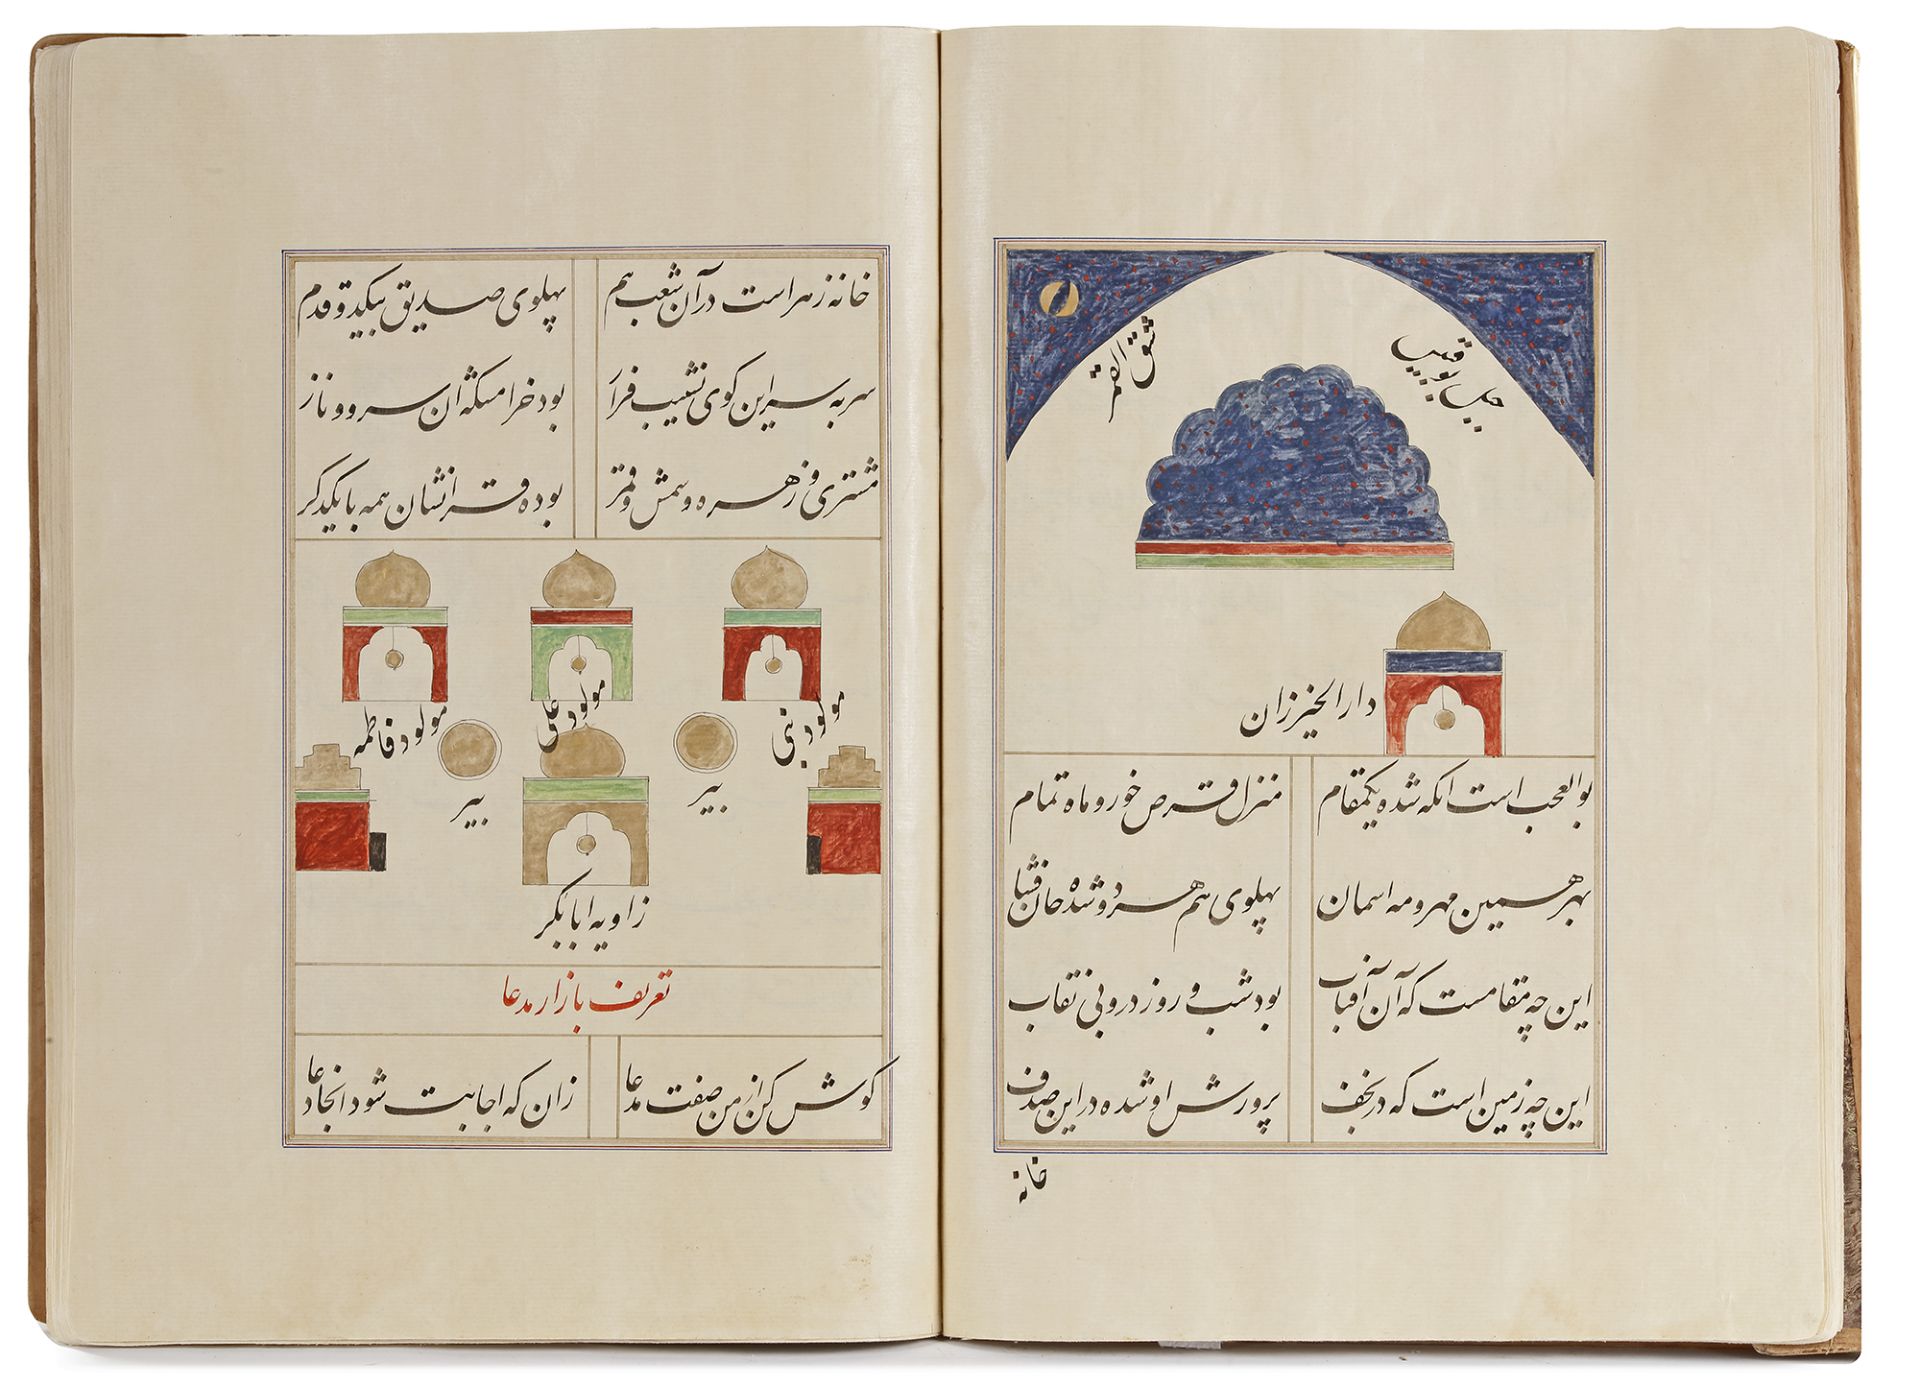 شق القمر
جبل بوقبیس
دار الخیزران
بوالعجب است انکه شده یکمقام
منزل و قرص خور و ماه تمام
بهر همین مهر و مه اسمان
پهلوی هم هر دو شده
این چه مقامست که آن آفتاب
بود شب و روز درو بی نقاب
این چه زمین است که در نجف
پرورش او شده در این صدف
خانه
خانه زهراست در آن شعب هم
پهلوی صدیق بیکید و قدم
سر به سر این کوی نشیب فراز
بود خرامنکه آن سرو و ناز
مشتری و زهره و شمس و قمر
بوده قرانشان همه با یکدکر
مولود نبی
مولود علی
مولود فاطمه
بیر
بیر
زاویه ابابکر
تعریف بازار مدعا
کوش کن از من صفت مدعا
زان که اجابت شود انجا دعا